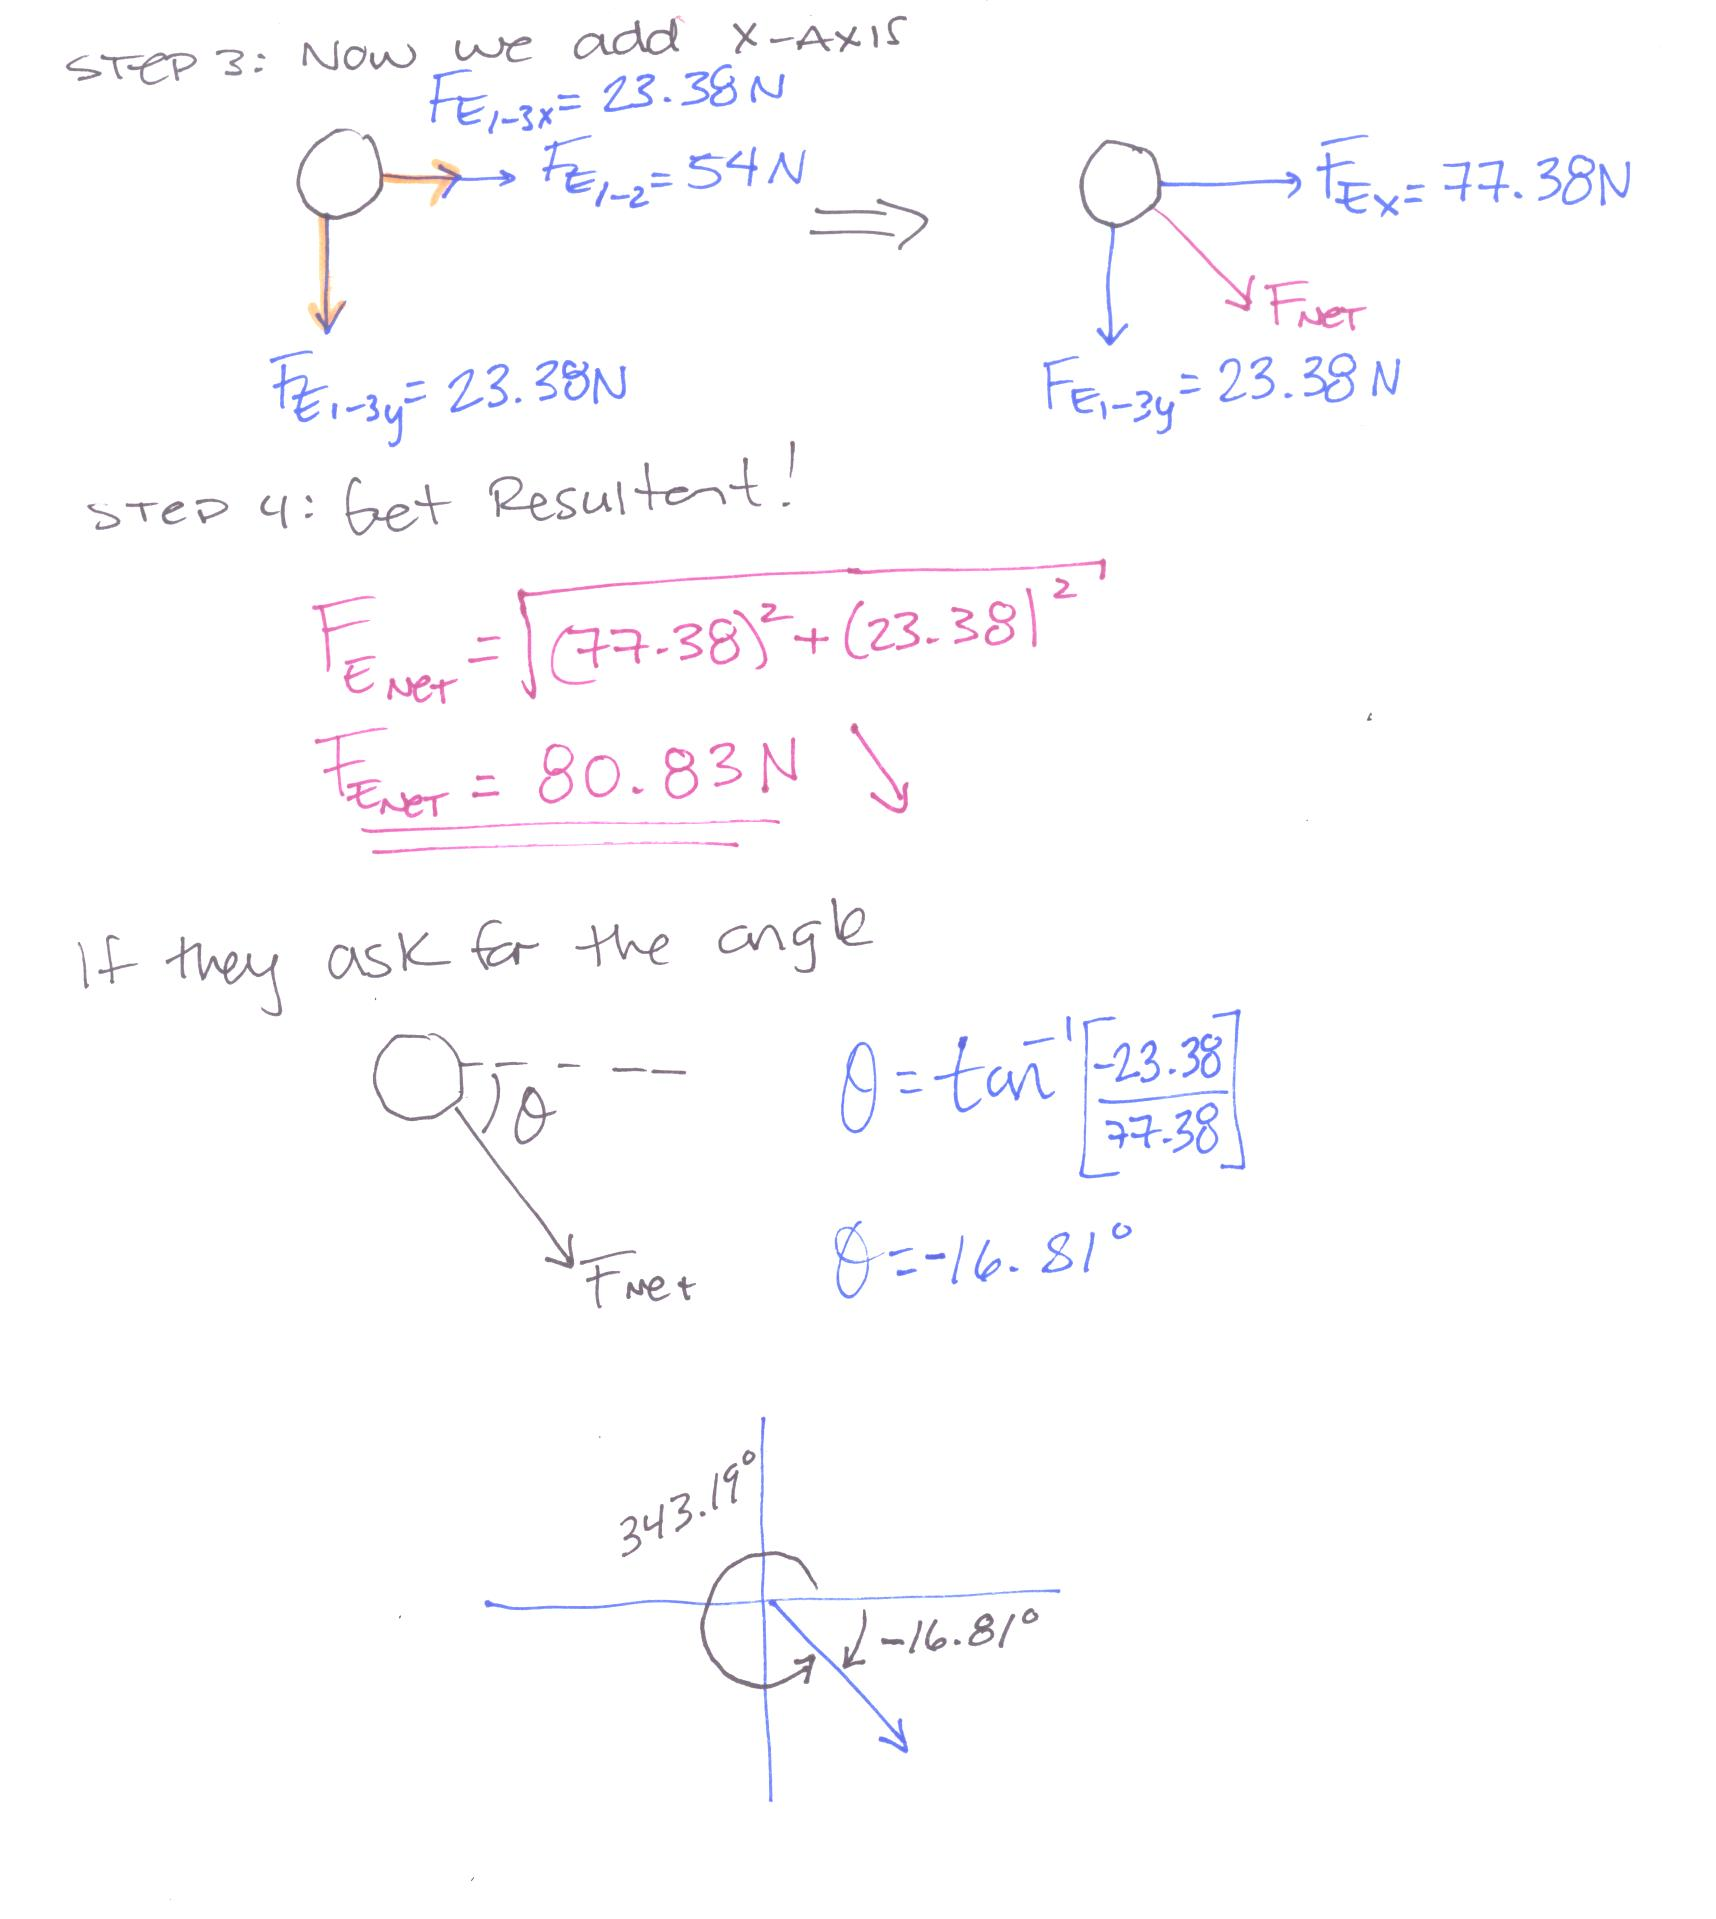 STEP 3: Now we add X-AXIS
FE1-3x = 23.38N
FE1-2 = 54N
FEx = 77.38N
FNET
FE1-3y = 23.38N
FE1-3y = 23.38N
STEP 4: Get Resultent!
FENET = √(77.38)² + (23.38)²
FENET = 80.83N
If they ask for the angle
θ
θ = tan⁻¹[-23.38/77.38]
θ = -16.81°
FNet
343.19°
-16.81°